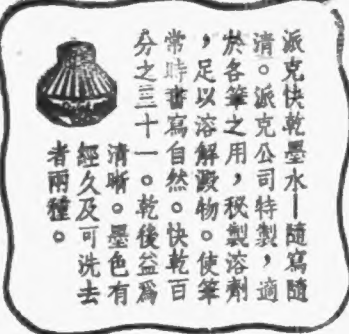 派克快乾墨水—隨寫隨
清。派克公司特製,適
於各筆之用,秘製溶劑
,足以溶解澱物。使筆
常時書寫自然。快乾百
分之三十一。乾後益爲
清晰。墨色有
經久及可洗去
者兩種。